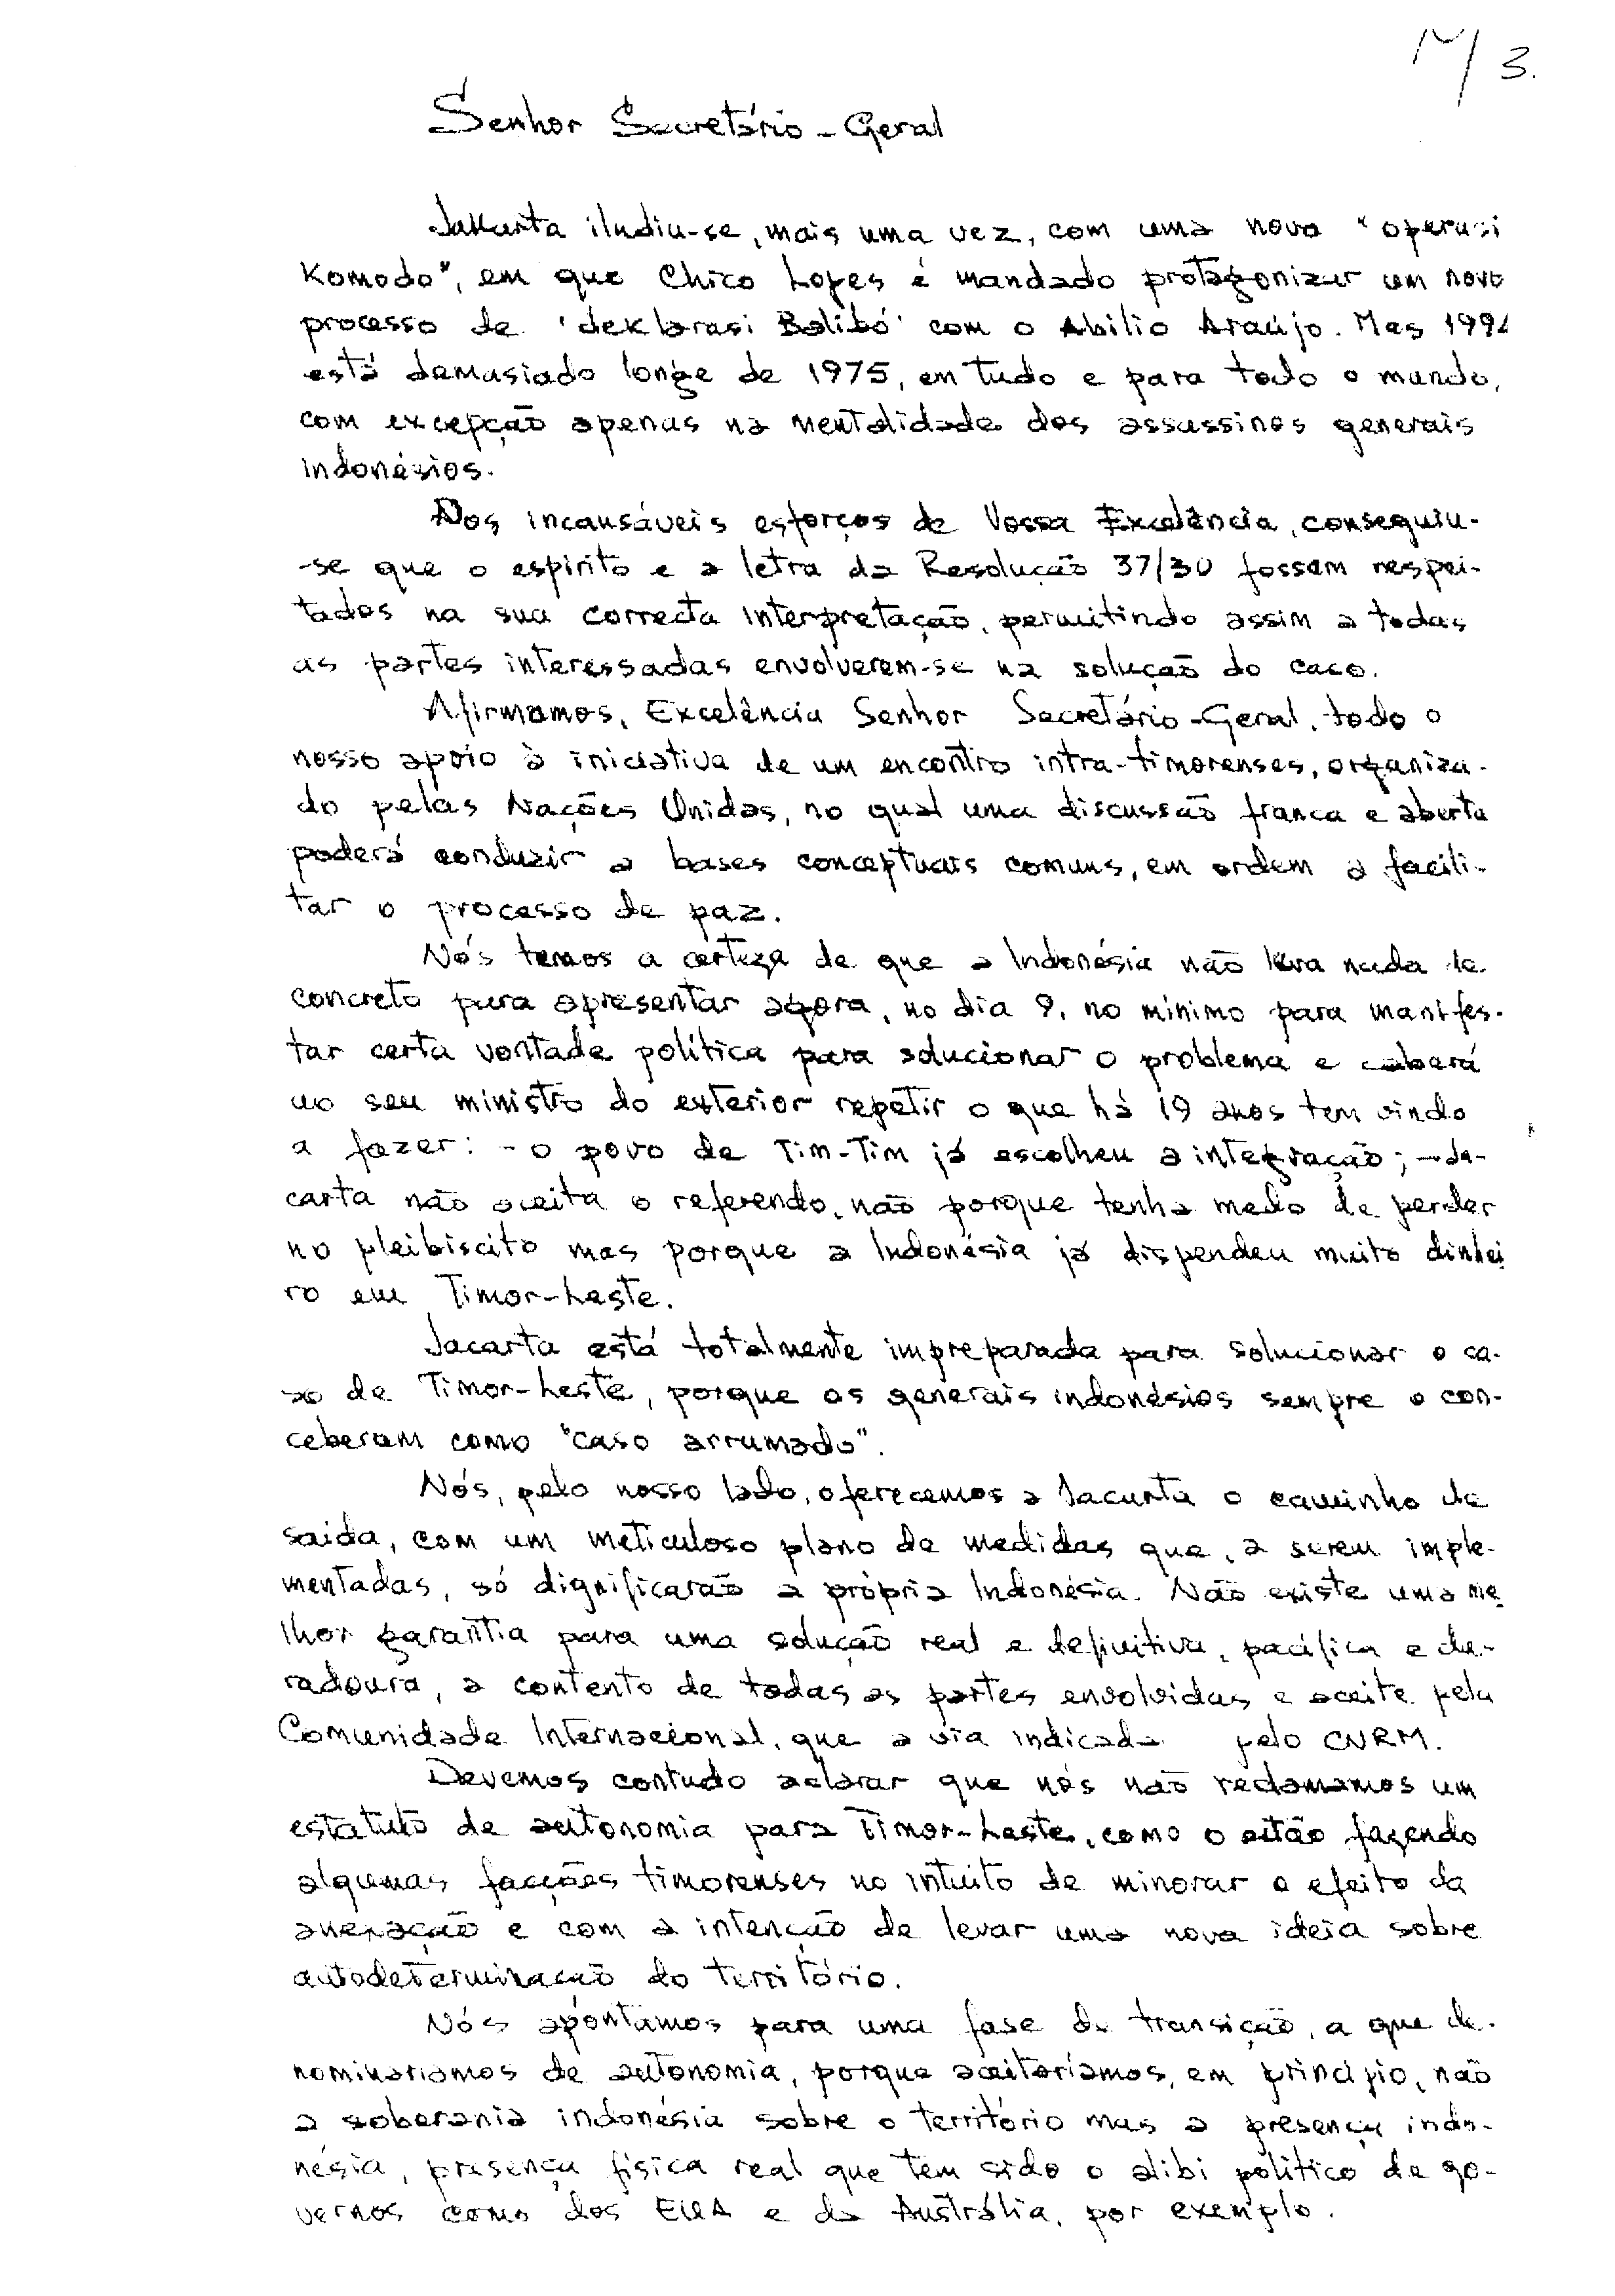 3.
Senhor Secretário-Geral
Jakarta iludiu-se, mais uma vez, com uma nova "operasi
Komodo", em que Chico Lopes é mandado protagonizar um novo
processo de 'deklarasi Balibó' com o Abílio Araújo. Mas 1994
está demasiado longe de 1975, em tudo e para todo o mundo,
com excepção apenas na mentalidade dos assassinos generais
indonésios.
Dos incansáveis esforços de Vossa Excelência, conseguiu-
-se que o espírito e a letra da Resolução 37/30 fossem respei-
tados na sua correcta interpretação, permitindo assim a todas
as partes interessadas envolverem-se na solução do caso.
Afirmamos, Excelência Senhor Secretário-Geral, todo o
nosso apoio à iniciativa de um encontro intra-timorenses, organiza-
do pelas Nações Unidas, no qual uma discussão franca e aberta
poderá conduzir a bases conceptuais comuns, em ordem a facili-
tar o processo de paz.
Nós temos a certeza de que a Indonésia não leva nada de
concreto para apresentar agora, no dia 9, no mínimo para manifes-
tar certa vontade política para solucionar o problema e caberá
ao seu ministro do exterior repetir o que há 19 anos tem vindo
a fazer: - o povo de Tim-Tim já escolheu a integração; - Ja-
carta não aceita o referendo, não porque tenha medo de perder
no pleibiscito mas porque a Indonésia já dispendeu muito dinhei
ro em Timor-Leste.
Jacarta está totalmente impreparada para solucionar o ca-
so de Timor-Leste, porque os generais indonésios sempre o con-
ceberam como "caso arrumado".
Nós, pelo nosso lado, oferecemos a Jacarta o caminho de
saída, com um meticuloso plano de medidas que, a serem imple-
mentadas, só dignificarão a própria Indonésia. Não existe uma me
lhor garantia para uma solução real e definitiva, pacífica e du-
radoura, a contento de todas as partes envolvidas e aceite pela
Comunidade Internacional, que a via indicada pelo CNRM.
Devemos contudo aclarar que nós não reclamamos um
estatuto de autonomia para Timor-Leste, como o estão fazendo
algumas facções timorenses no intuito de minorar o efeito da
anexação e com a intenção de levar uma nova ideia sobre
autodeterminação do território.
Nós apontamos para uma fase de transição, a que de-
nominaríamos de autonomia, porque aceitaríamos, em princípio, não
a soberania indonésia sobre o território mas a presença indo-
nésia, presença física real que tem sido o alibi político de go-
vernos como dos EUA e da Austrália, por exemplo.